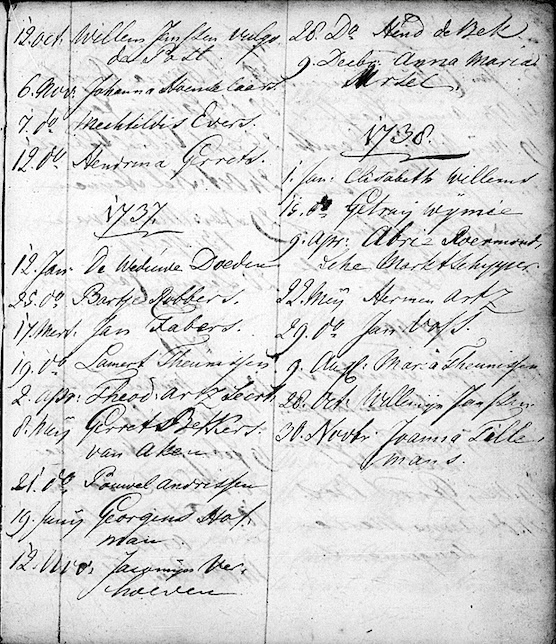 12. oct. Willem Janssen vulgo
de Post
6. Nov. Johanna
7. do Mechtildis Evers.
12. do Hendrina Gerrets.
1737.
12. Jan. De Weduwe Doeden
25. do Bartje Robbers.
17. Mert. Jan Fabers.
19. do Lamert Theunissen
2. apr: Theod. Artz
8. Meij Gerret Bekkers.
van Aken
21. do Pouwel Andrissen
19. Junij Georgens Hof
man
12. Jacomijn Ver
hoeven
28. Do Hend de Bek
9. Decbr. Anna Maria
1738.
1. Jan: Elisabeth Willems
do Getruij Wymie
9. Apr: Roermond
sche Markt Schipper.
22. Meij Hermen Artz
29. do Jan Voss.
9. Aug. Maria Theunissen
28. Oct. Willemijn Janssen
30. Novbr. Joanna Tille
mans.